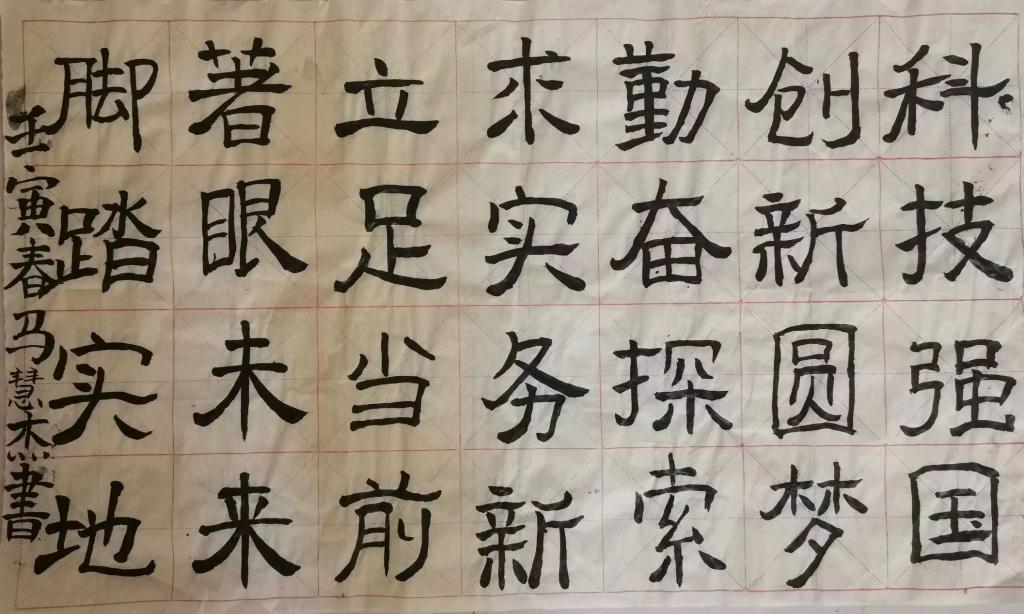 科技强国
创新圆梦
勤奋探索
求实务新
立足当前
著眼未来
脚踏实地
壬寅春马慧杰書